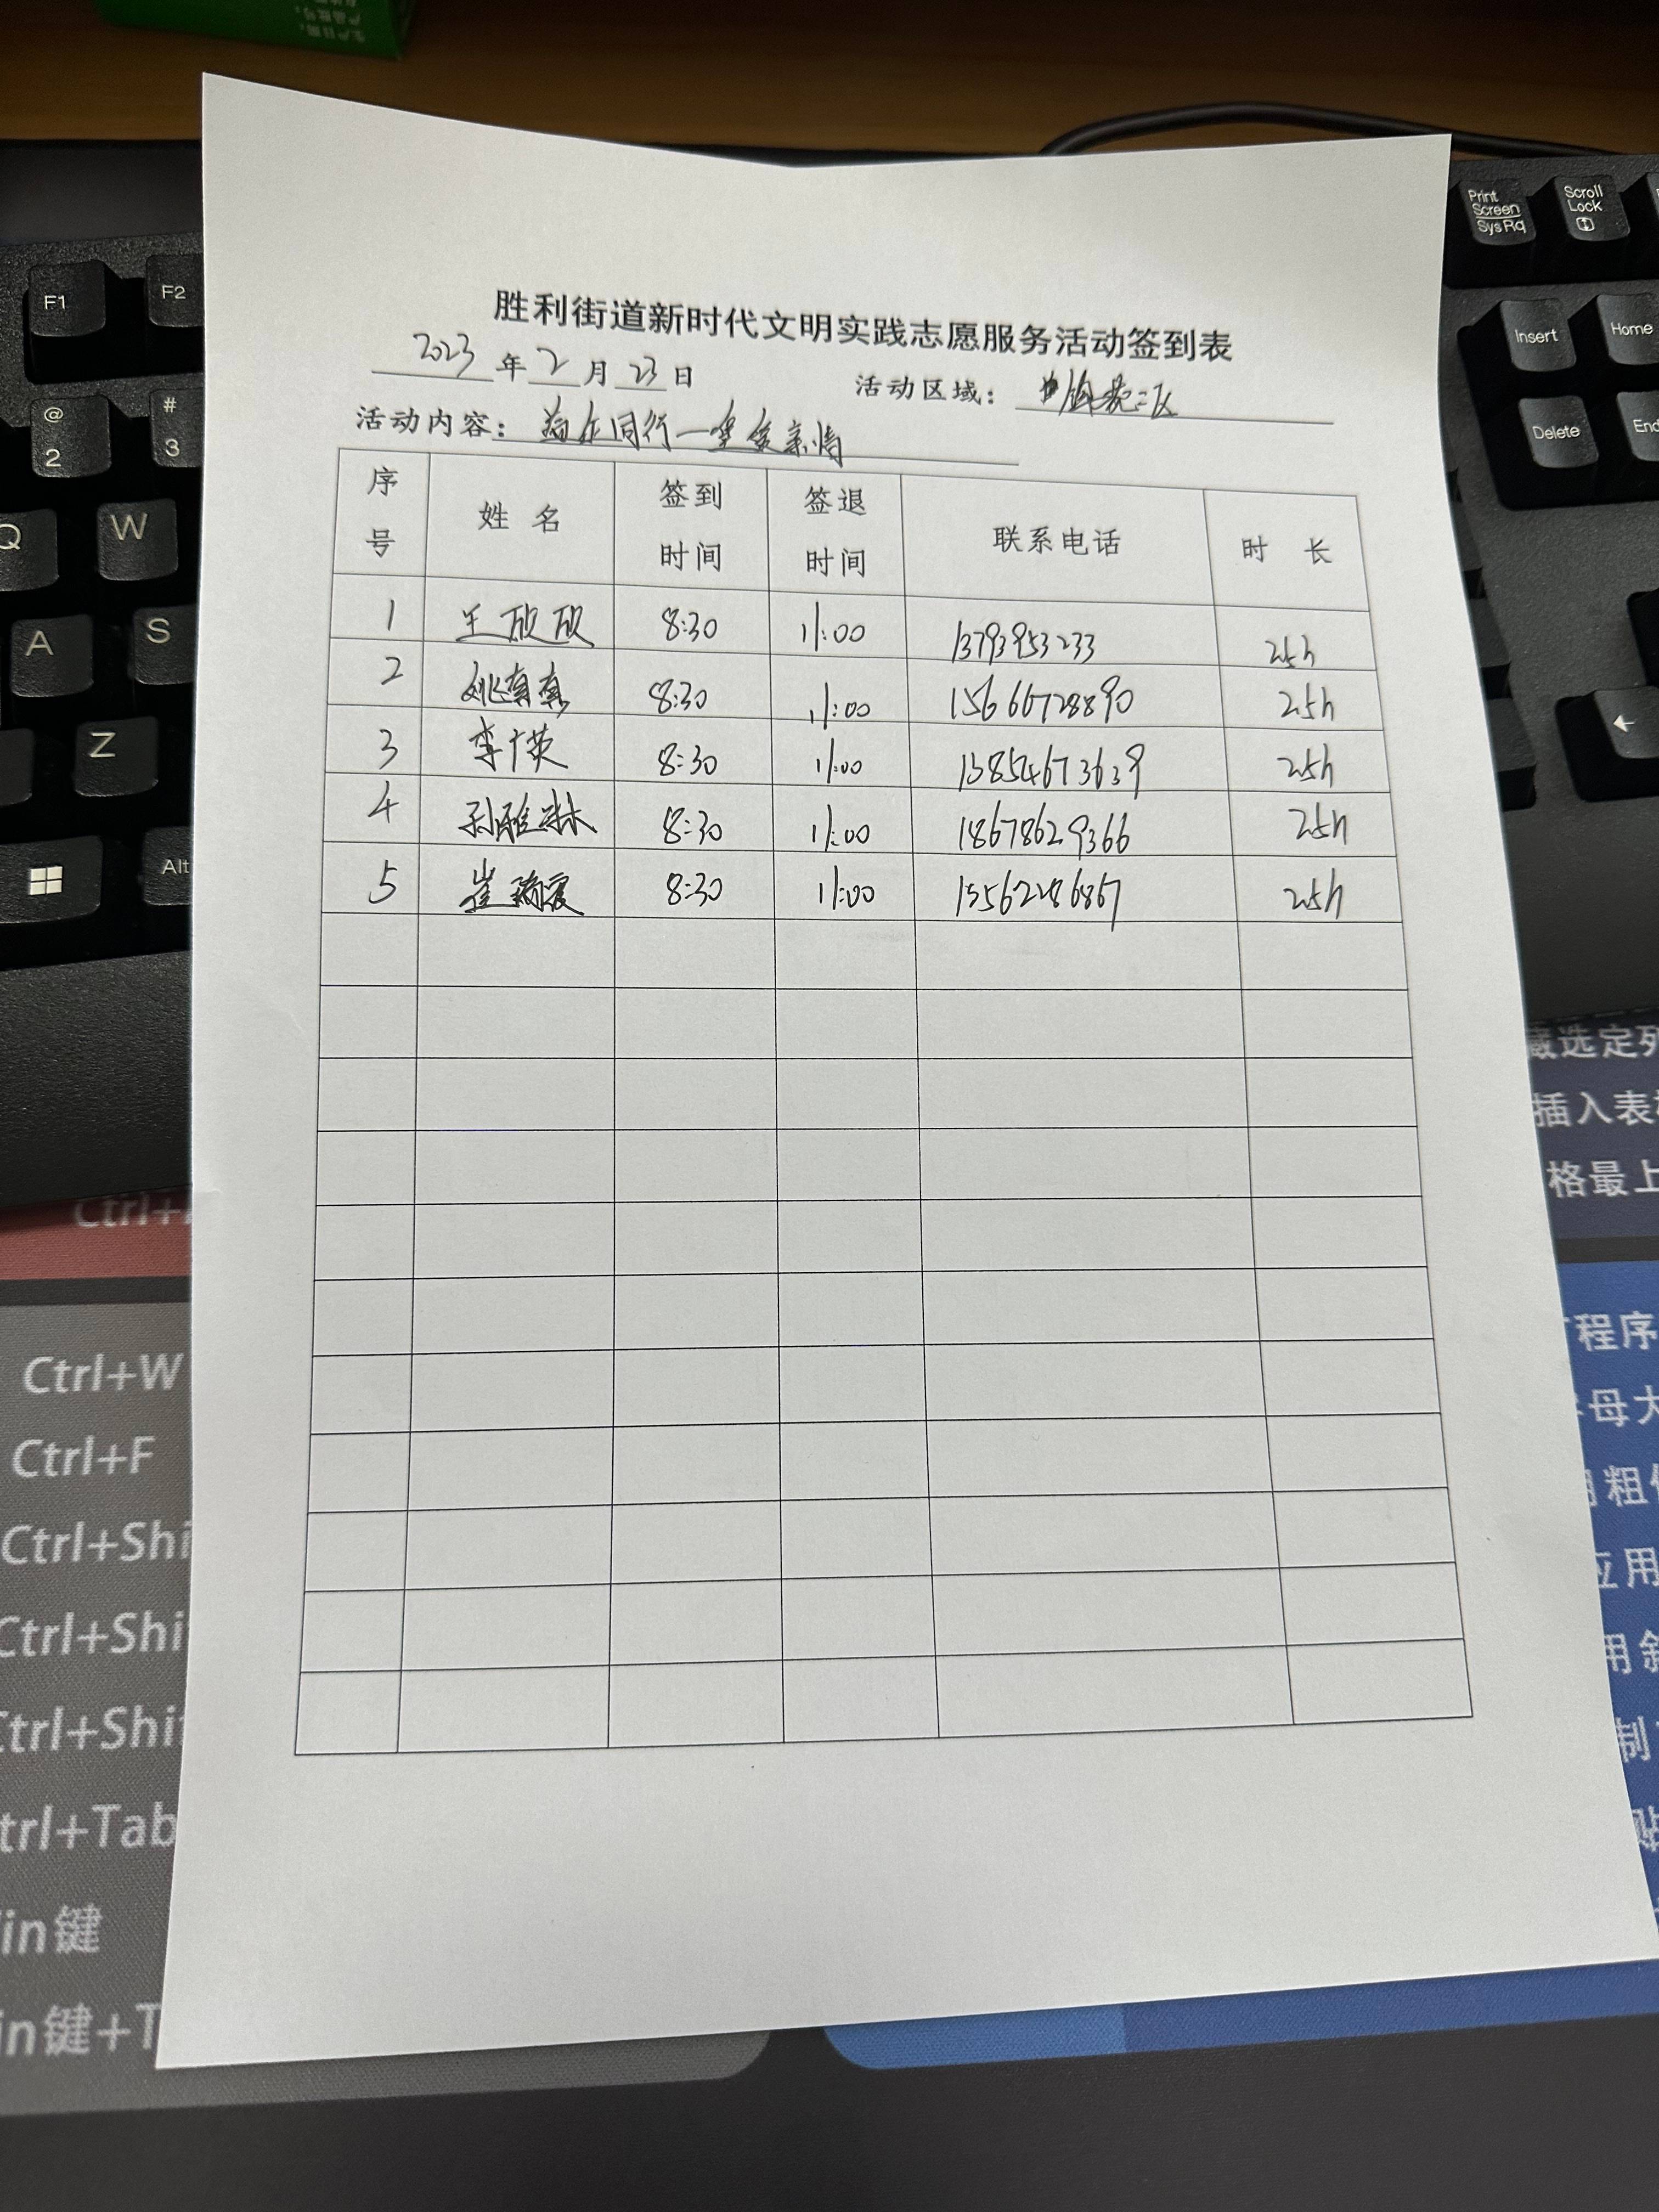 生产日期:
产品批号:
Print Screen SysRq
Scroll Lock
F1 F2
Insert Home
@ 2 # 3
Delete End
Q W
A S
Z
Alt
胜利街道新时代文明实践志愿服务活动签到表
2023年2月23日 活动区域: 二区
活动内容: 同行一 亲情
序号 姓名 签到时间 签退时间 联系电话 时长
1 王欣欣 8:30 11:00 13793953233 2.5h
2 姚真真 8:30 11:00 15666728890 2.5h
3 李广英 8:30 11:00 13854673639 2.5h
4 孙雅琳 8:30 11:00 18678629366 2.5h
5 崔 霞 8:30 11:00 15562286867 2.5h
藏选定列
插入表格
格最上
Ctrl+
Ctrl+W
Ctrl+F
Ctrl+Shi
Ctrl+Shi
Ctrl+Shi
Ctrl+Tab
Win键
Win键+T
程序
字母大
用粗
应用
用斜
制
贴